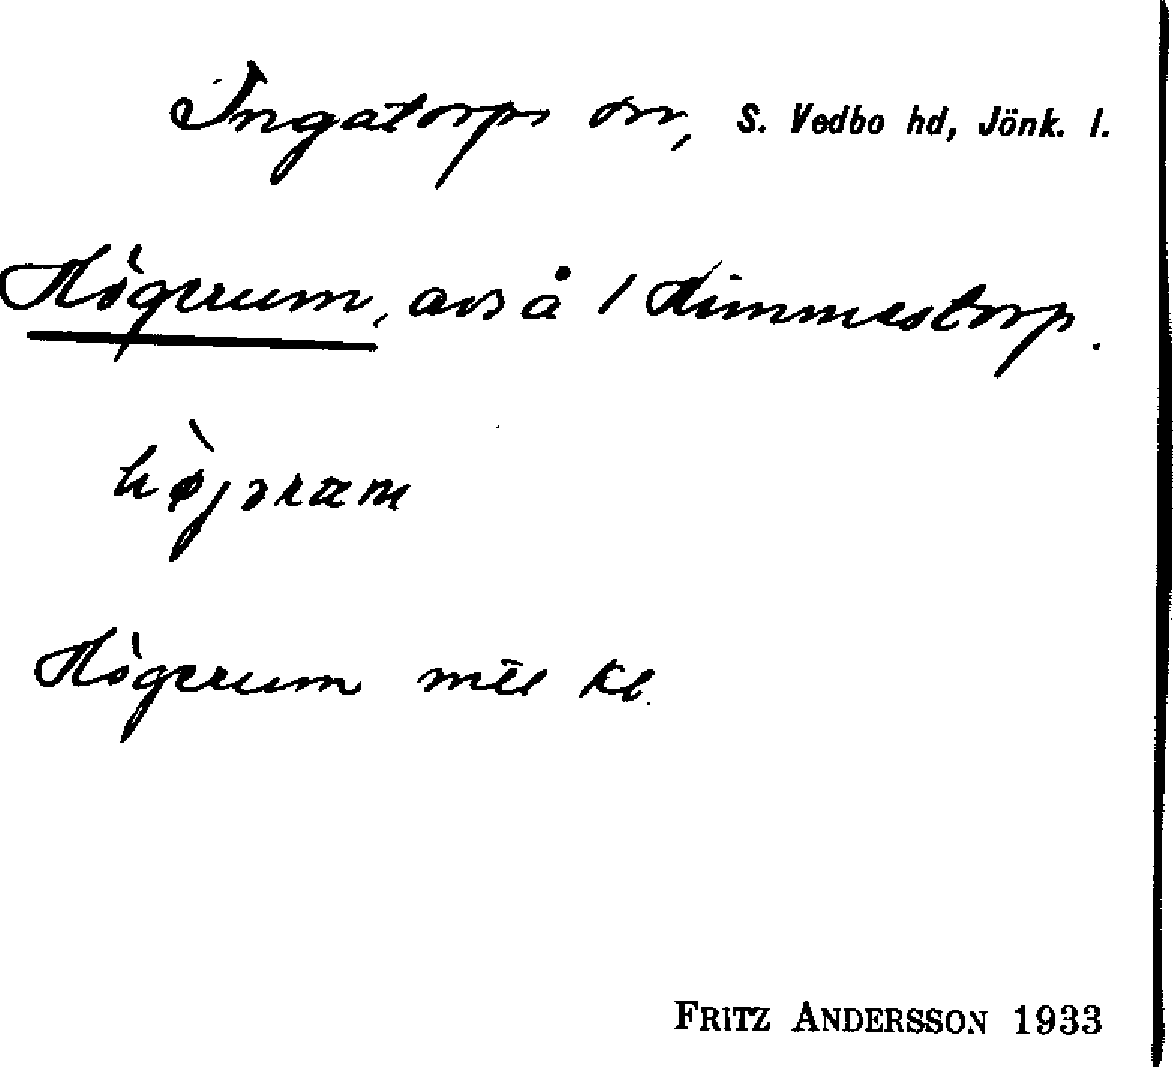 Ingatorps sn, S. Vedbo hd, Jönk. l.
Högerum, avs å 1 Himmestorp.
højəram
Högerum mtl Kl.
FRITZ ANDERSSON 1933